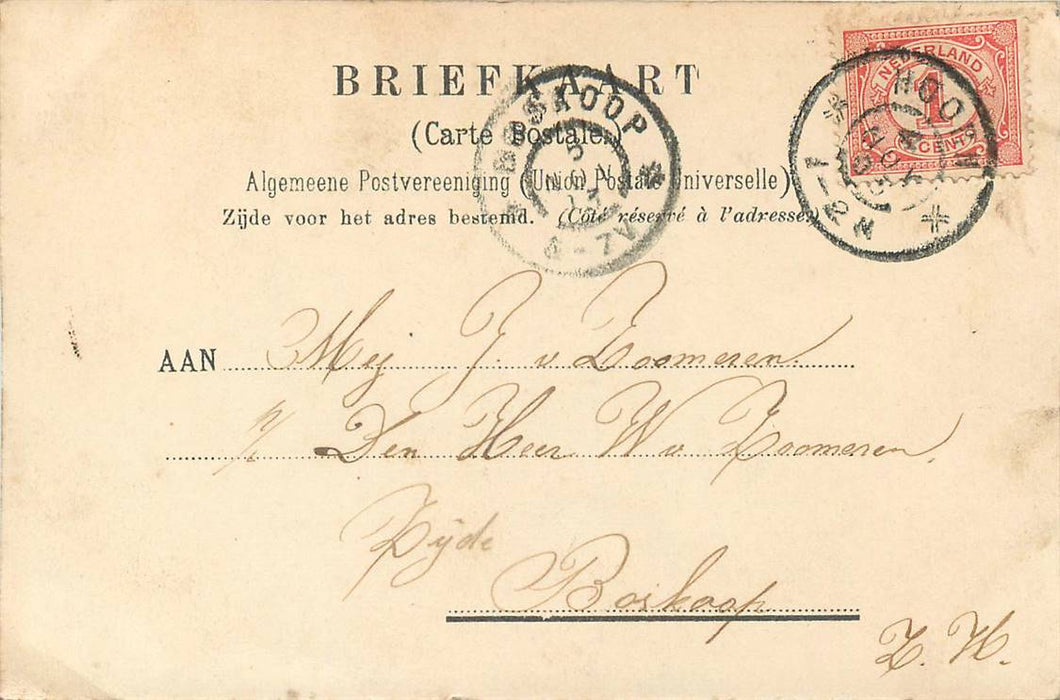 BRIEFKAART
(Carte Postale)
Algemeene Postvereeniging (Union Postale Universelle)
Zijde voor het adres bestemd. (Côté réservé à l'adresse)
NEDERLAND
1
CENT
HOORN
4 NOV
BOSKOOP
5 NOV
6-7V
AAN Mej J. v Zoomeren.
p/ Den Heer W v Zoomeren,
Zijde
Boskoop
Z. H.